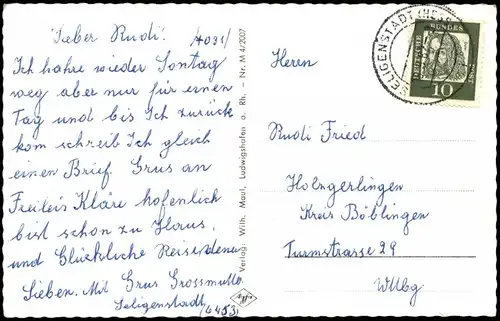 Lieber Rudi!
Ich fahre wieder Sontag
weg aber nur für einen
Tag und bis Ich zurück
kom schreib Ich gleich
einen Brief. Grus an
Kläre hofenlich
bist schon zu Haus.
und Glückliche Reise denn
Lieben. Mit Grus Grossmutter
Seligenstadt
Verlag: Wilh. Maul, Ludwigshafen a. Rh. – Nr. M 4/2007
Agfa
SELIGENSTADT (HESS)
DEUTSCHE BUNDESPOST
10
Herrn
Rudi Fried
Holzgerlingen
Kreis Böblingen
Turmstrasse 29
Wttbg